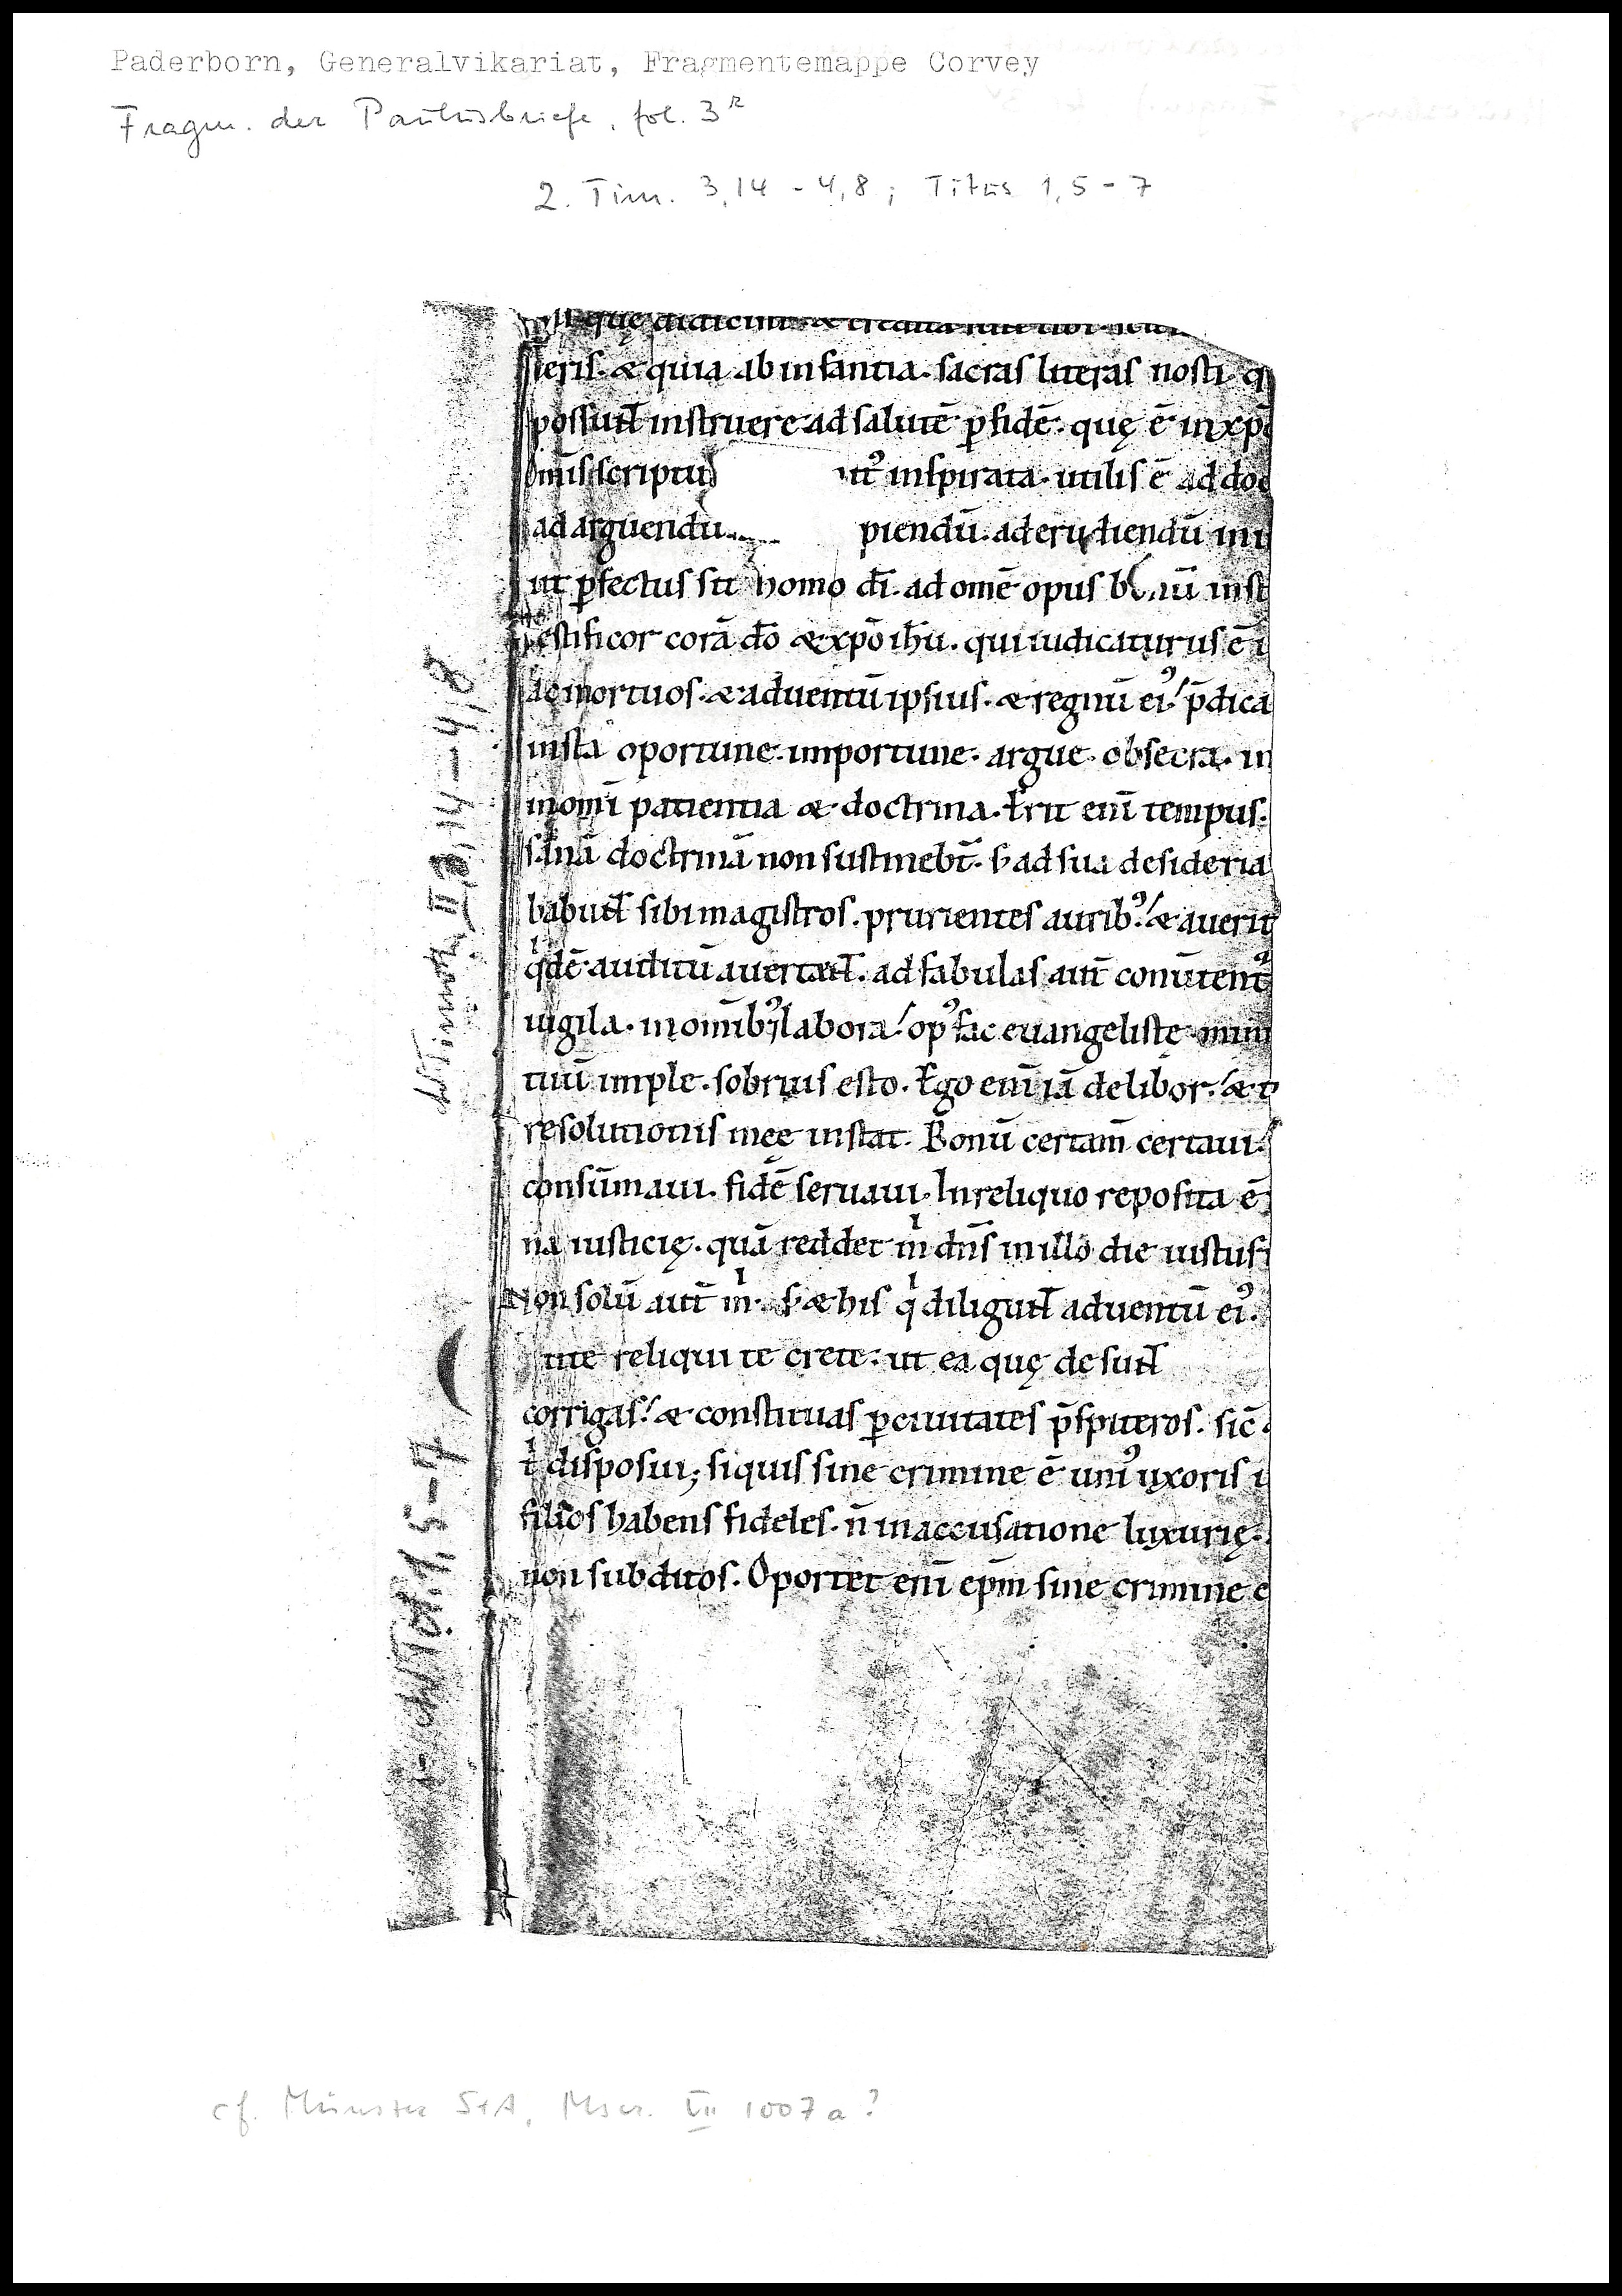 Paderborn, Generalvikariat, Fragmentemappe Corvey
Fragm. der Paulusbriefe, fol. 3ʳ
2. Tim. 3,14 - 4,8 ; Titus 1,5 - 7
quę didicisti & credita sunt tibi
teris. & quia ab infantia. sacras literas nosti. q
possunt instruere ad salutē ꝑ fidē. quę ē in xp̄o
om̄is scriptu itꝰ inspirata. utilis ē ad doc
ad arguendū piendū. ad erudiendū in i
ut ꝑfectus sit homo dī. ad om̄e opus b ū inst
estificor corā dō & xp̄o ih̄u. qui iudicaturus ē
ac mortuos. & aduentū ipsius. & regnū eiꝰ p̄dica
insta oportune. importune. argue. obsecra. in
in om̄i patientia & doctrina. Erit enī tempus.
sanā doctrinā non sustinebt̄. s; ad sua desideria
babunt sibi magistros. prurientes auribꝰ. & a uerit
qͥdē auditū auertent. ad fabulas aut̄ conūtent᷑
uigila. in om̄ibꝰ labora. opꝰ fac euangelistę. min
tuū imple. sobrius esto. Ego enī iā delibor. & t
resolutionis meę instat. Bonū certam̄ certaui.
consūmaui. fidē seruaui. In reliquo reposita ē
na iusticię. quā reddet mͥ dn̄s in illo die iustus
Non solū aut̄ mͥ. s; & his qͥ diligunt aduentū eiꝰ.
reliqui te crete. ut ea quę desunt
corrigas. & constituas ꝑ ciuitates p̄sƀiteros. sic̄
tͥ disposui; siquis sine crimine ē. uniꝰ uxoris
filios habens fideles. n̄ in accusatione luxurię.
non subditos. Oportet enī ep̄m sine crimine e
II 3,14-4,8
1,5-7
cf. Münster StA, Mscr. VII 1007a?